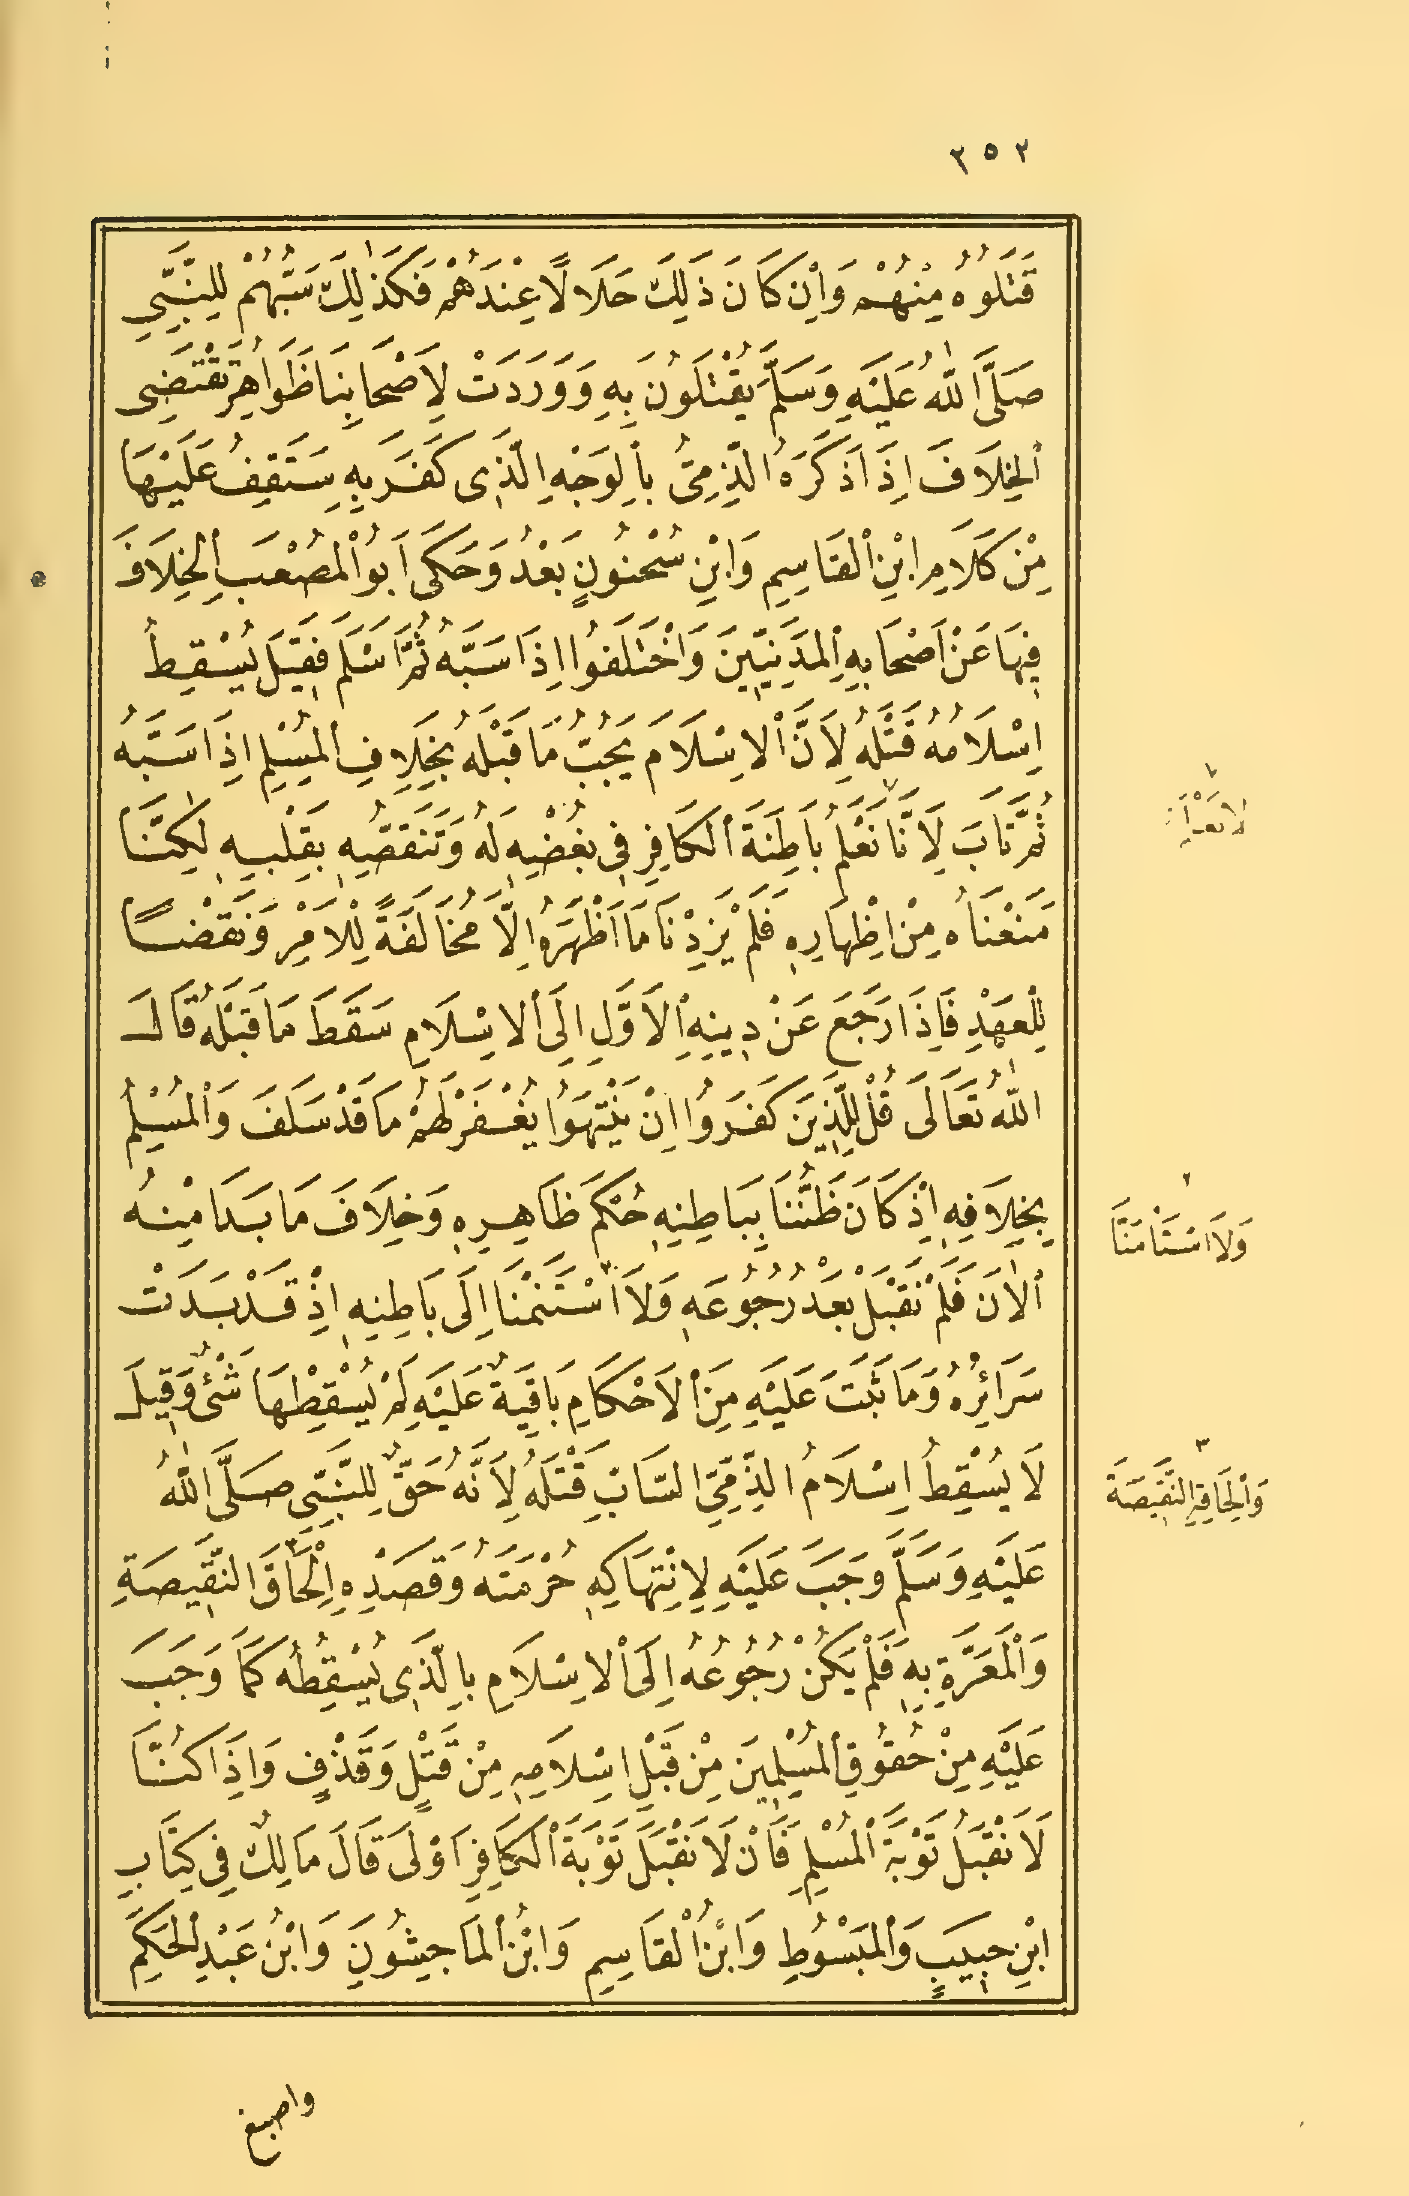 ٢٥٢
قَتَلُوهُ مِنْهُمْ وَاِنْ كَانَ ذَلِكَ حَلَالًا عِنْدَهُمْ فَكَذٰلِكَ سَبُّهُمْ لِلنَّبِيِّ
صَلَّى اللّٰهُ عَلَيْهِ وَسَلَّمَ يُقْتَلُونَ بِهِ وَوَرَدَتْ لِاَصْحَابِنَا ظَوَاهِرُ تَقْتَضِى
الْخِلَافَ اِذَا ذَكَرَهُ الذِّمِّىُّ بِالْوَجْهِ الَّذِى كَفَرَ بِهِ سَتَقِفُ عَلَيْهَا
مِنْ كَلَامِ ابْنِ الْقَاسِمِ وَابْنِ سُحْنُونٍ بَعْدُ وَحَكَى اَبُو الْمُصْعَبِ الْخِلَافَ
فِيهَا عَنْ اَصْحَابِهِ الْمَدَنِيِّينَ وَاخْتَلَفُوا اِذَا سَبَّهُ ثُمَّ اَسْلَمَ فَقِيلَ يُسْقِطُ
اِسْلَامُهُ قَتْلَهُ لِاَنَّ الْاِسْلَامَ يَجُبُّ مَا قَبْلَهُ بِخِلَافِ الْمُسْلِمِ اِذَا سَبَّهُ
ثُمَّ تَابَ لِاَنَّا نَعْلَمُ بَاطِنَةَ الْكَافِرِ فِى بُغْضِهِ لَهُ وَتَنَقُّصِهِ بِقَلْبِهِ لٰكِنَّا
مَنَعْنَاهُ مِنْ اِظْهَارِهِ فَلَمْ يَزِدْنَا مَا اَظْهَرَهُ اِلَّا مُخَالَفَةً لِلْاَمْرِ وَنَقْضًا
لِلْعَهْدِ فَاِذَا رَجَعَ عَنْ دِينِهِ الْاَوَّلِ اِلَى الْاِسْلَامِ سَقَطَ مَا قَبْلَهُ قَالَ
اللّٰهُ تَعَالَى قُلْ لِلَّذِينَ كَفَرُوا اِنْ يَنْتَهُوا يُغْفَرْ لَهُمْ مَا قَدْ سَلَفَ وَالْمُسْلِمُ
بِخِلَافِهِ اِذْ كَانَ ظَنُّنَا بِبَاطِنِهِ حُكْمَ ظَاهِرِهِ وَخِلَافَ مَا بَدَا مِنْهُ
الْاٰنَ فَلَمْ نَقْبَلْ بَعْدُ رُجُوعَهِ وَلَا اَسْتَنَمْنَا اِلَى بَاطِنِهِ اِذْ قَدْ بَدَتْ
سَرَائِرُهُ وَمَا ثَبَتَ عَلَيْهِ مِنَ الْاَحْكَامِ بَاقِيَةٌ عَلَيْهِ لَمْ يُسْقِطْهَا شَىْءٌ وَقِيلَ
لَا يُسْقِطُ اِسْلَامُ الذِّمِّىِّ السَّابِّ قَتْلَهُ لِاَنَّهُ حَقٌّ لِلنَّبِىِّ صَلَّى اللّٰهُ
عَلَيْهِ وَسَلَّمَ وَجَبَ عَلَيْهِ لِانْتِهَاكِهِ حُرْمَتَهُ وَقَصْدِهِ اِلْحَاقَ النَّقِيصَةِ
وَالْمَعَرَّةِ بِهِ فَلَمْ يَكُنْ رُجُوعُهُ اِلَى الْاِسْلَامِ بِالَّذِى يُسْقِطُهُ كَمَا وَجَبَ
عَلَيْهِ مِنْ حُقُوقِ الْمُسْلِمِينَ مِنْ قَبْلِ اِسْلَامِهِ مِنْ قَتْلٍ وَقَذْفٍ وَاِذَا كُنَّا
لَا نَقْبَلُ تَوْبَةَ الْمُسْلِمِ فَاَنْ لَا نَقْبَلَ تَوْبَةَ الْكَافِرِ اَوْلَى قَالَ مَالِكٌ فِى كِتَابِ
ابْنِ حَبِيبٍ وَالْمَبْسُوطِ وَابْنُ الْقَاسِمِ وَابْنُ الْمَاجِشُونِ وَابْنُ عَبْدِ الْحَكَمِ
٢
وَلَا اسْتَأْمَنَّا
٣
وَالْحَاقِهِ النَّقِيصَةَ
واصبغ